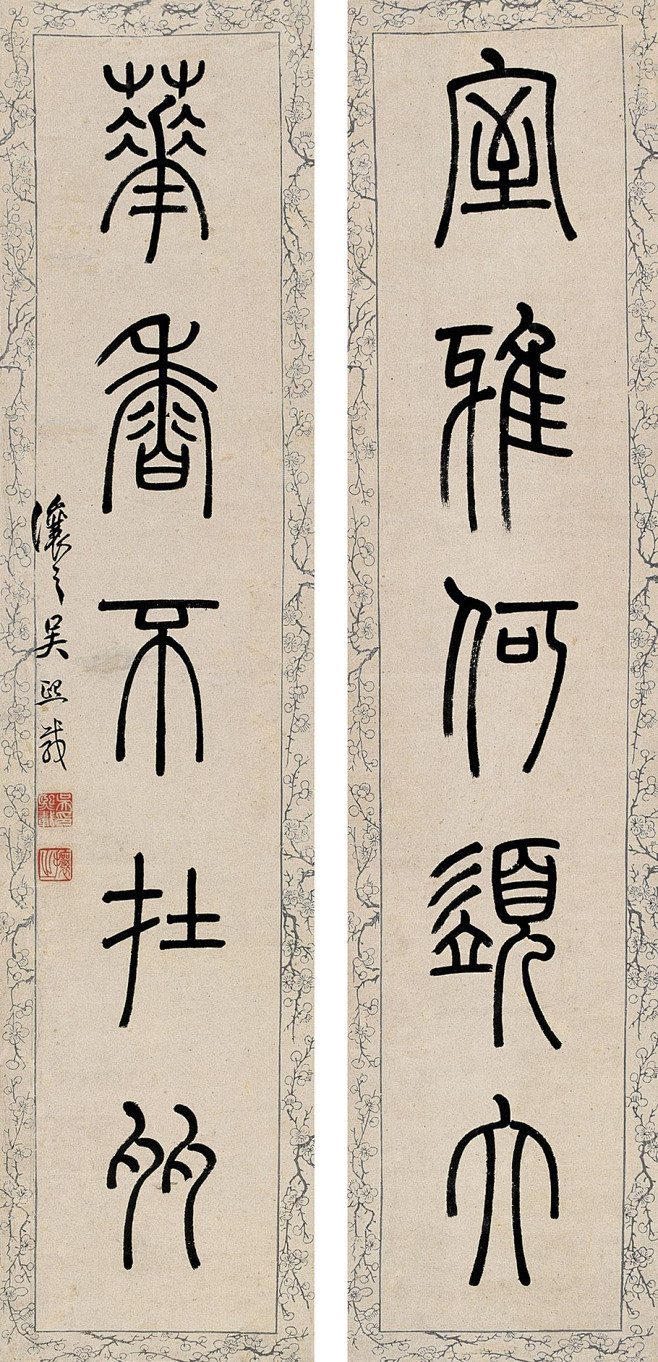 室雅何須大
華香不在多
讓之吳熙載
攘之